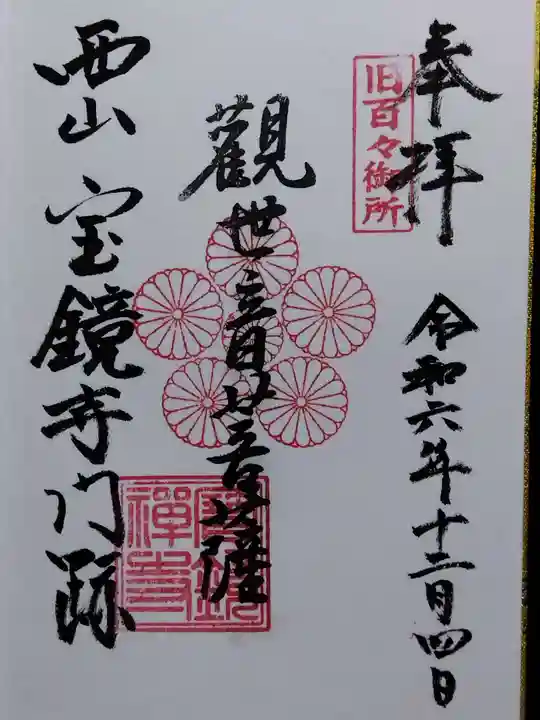 奉拝
旧百々御所
令和六年十二月四日
觀世音菩薩
西山 宝鏡寺門跡
寳鏡
禪寺